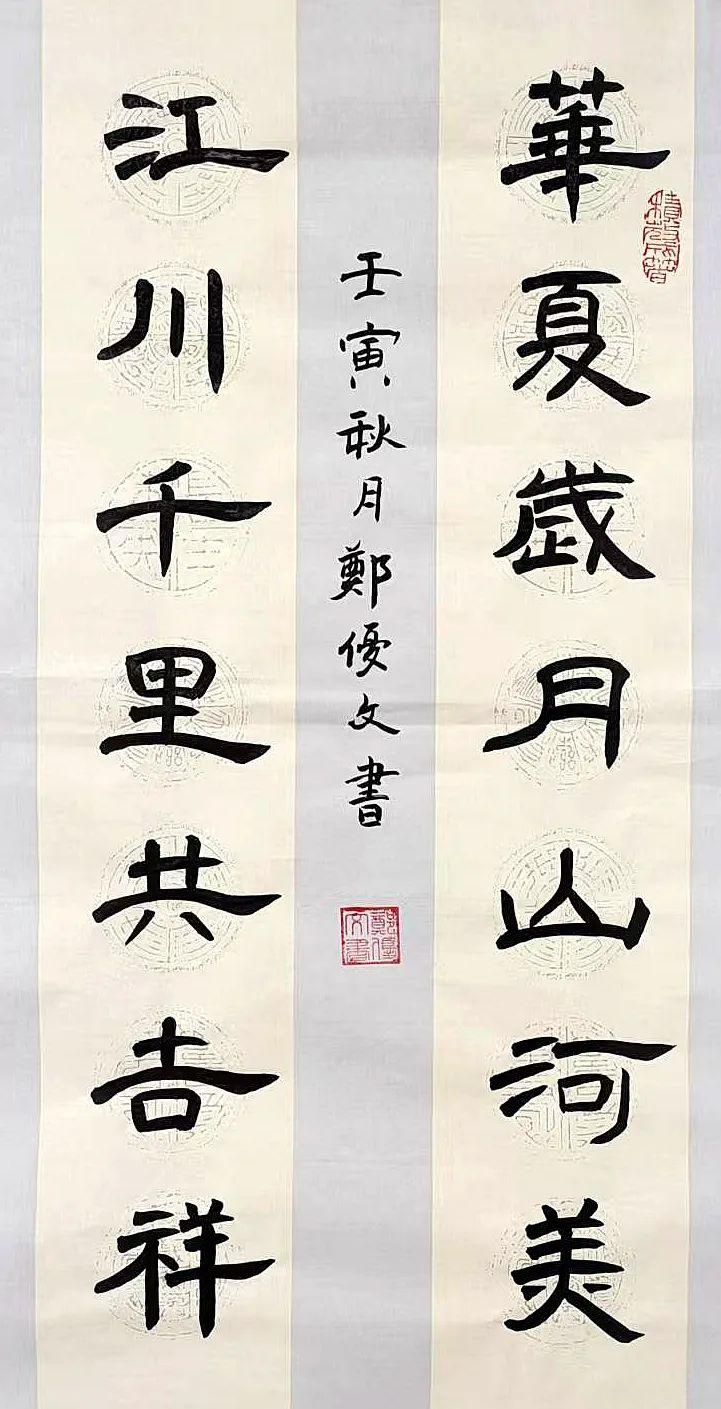 華夏歲月山河美
江川千里共吉祥
壬寅秋月鄭優文書
鄭優文書